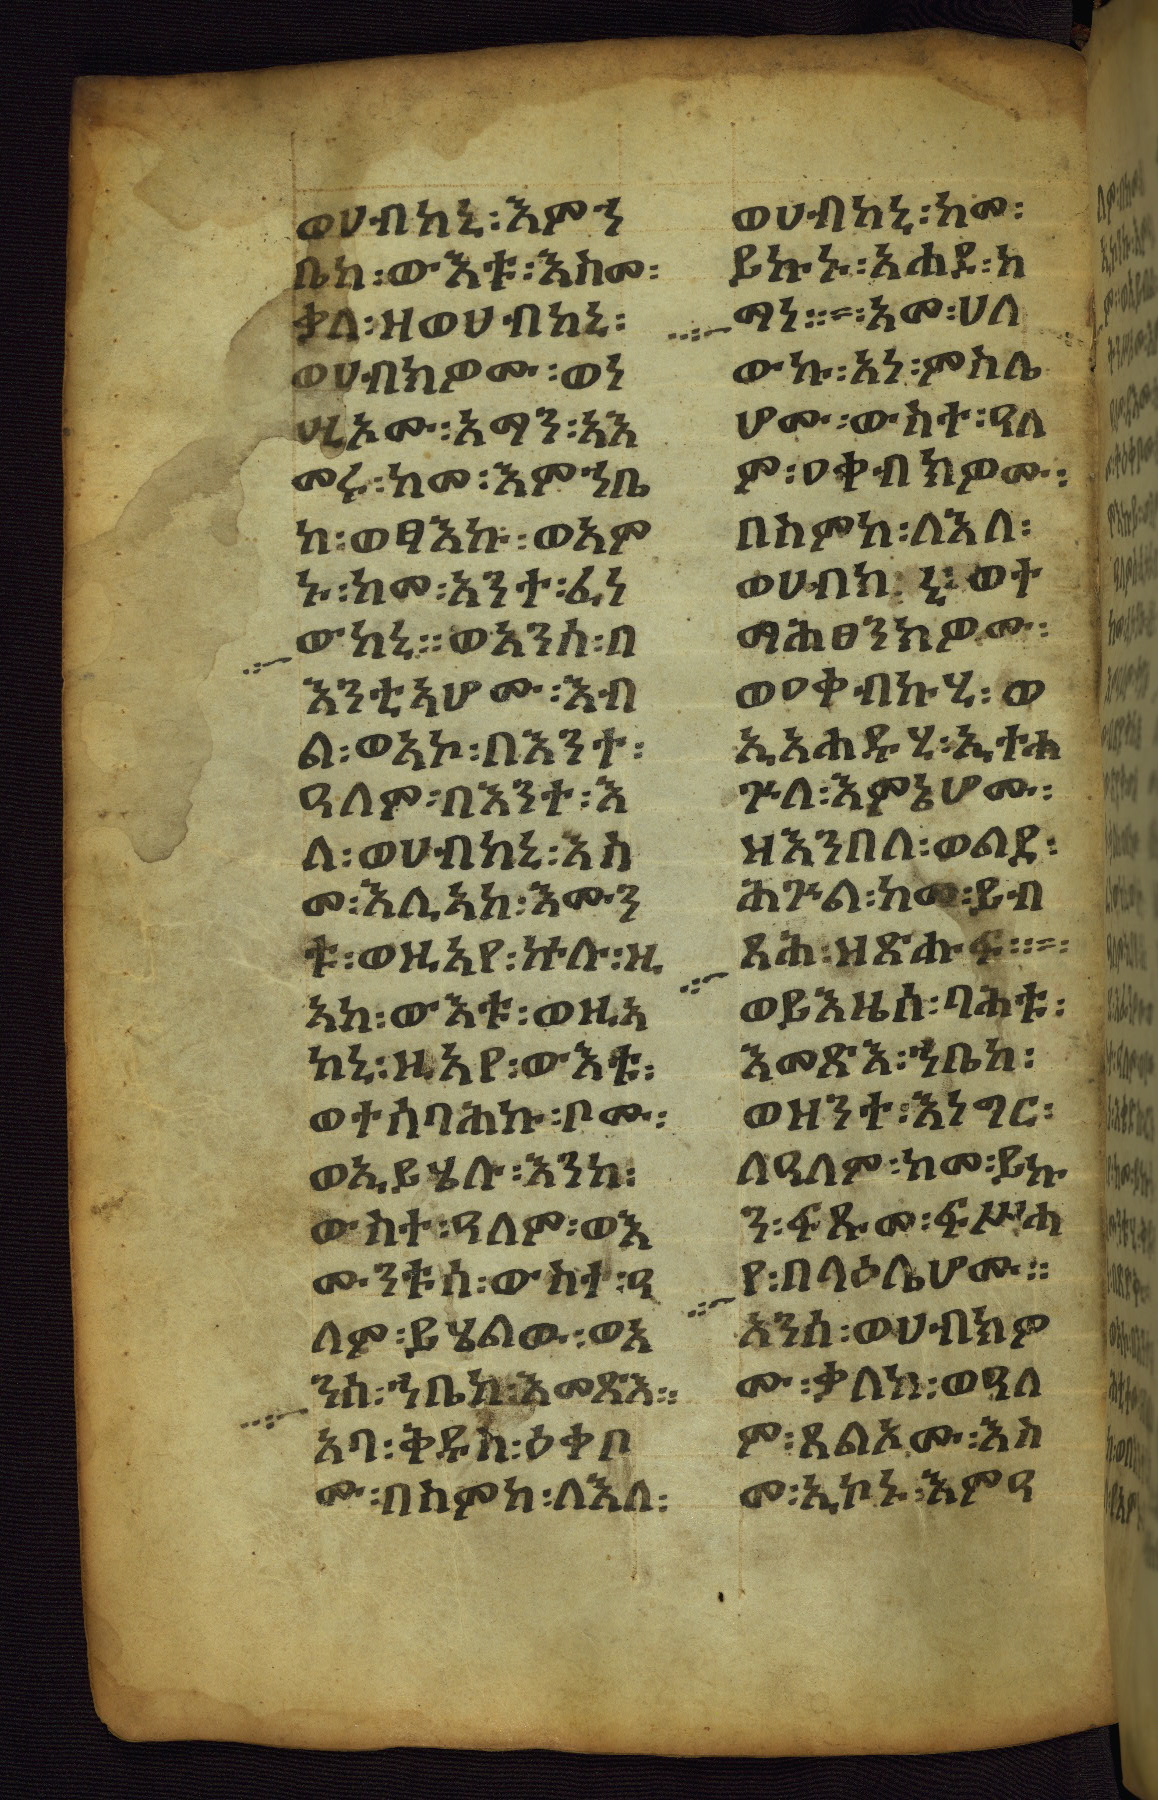 ወሀብከኒ፡እምኀ
ቤከ፡ውእቱ፡እስመ፡
ቃለ፡ዘወሀብከኒ፡
ወሀብክዎሙ፡ወነ
ሢኦሙ፡አማን፡ኣእ
መሩ፡ከመ፡እምኀቤ
ከ፡ወፃእኩ፡ወአም
ኑ፡ከመ፡አንተ፡ፈነ
ውከኒ፡፡ወአንሰ፡በ
እንቲኣሆሙ፡እብ
ል፡ወአኮ፡በእንተ፡
ዓለም፡በእንተ፡እ
ለ፡ወሀብከኒ፡እስ
መ፡እሊኣከ፡እሙን
ቱ፡ወዚአየ፡ኵሉ፡ዚ
ኣከ፡ውእቱ፡ወዚኣ
ከኒ፡ዚአየ፡ውእቱ፡
ወተሰባሕኩ፡ቦሙ፡
ወኢይሄሉ፡እንከ፡
ውስተ፡ዓለም፡ወእ
ሙንቱሰ፡ውስተ፡ዓ
ለም፡ይሄልው፡ወአ
ንሰ፡ኀቤከ፡እመጽእ፡፡
አባ፡ቅዱስ፡ዕቀቦ
ሙ፡በስምከ፡ለእለ፡
ወሀብከኒ፡ከመ፡
ይኩኑ፡አሐደ፡ከ
ማነ፡፡=፡አመ፡ሀለ
ውኩ፡አነ፡ምስሌ
ሆሙ፡ውስተ፡ዓለ
ም፡ዐቀብክዎሙ፡
በስምከ፡ለእለ፡
ወሀብከ ኒ፡ ወተ
ማሕፀንክዎሙ፡
ወዐቀብኩሂ፡ ወ
ኢአሐዱሂ፡ኢተሐ
ጕለ፡እምኔሆሙ፡
ዘእንበለ፡ወልደ፡
ሕጕል፡ከመ፡ይብ
ጻሕ፡ዘጽሑፍ፡፡=፡
ወይእዜሰ፡ባሕቱ፡
እመጽእ፡ኀቤከ፡
ወዘንተ፡እነግር፡
ለዓለም፡ከመ፡ይኩ
ን፡ፍጹመ፡ፍሥሐ
የ፡በላዕሌሆሙ፡፡
አንሰ፡ወሀብክዎ
ሙ፡ቃለከ፡ወዓለ
ም፡ጸልኦሙ፡እስ
መ፡ኢኮኑ፡እምዓ